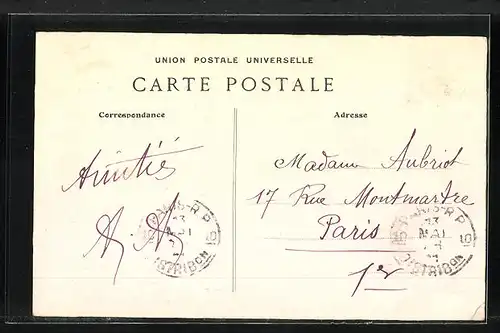 UNION POSTALE UNIVERSELLE
CARTE POSTALE
Correspondance
Adresse
Amitiés
Madame Aubriot
17 Rue Montmartre
Paris
1er
PARIS-R.P.
DISTRIBON
PARIS-R.P.
DISTRIBON